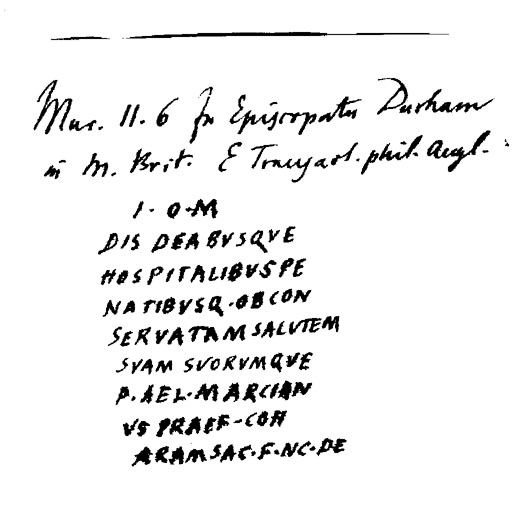 Mur. 11. 6 In Episcopatu Durham
in M. Brit. E Transact. phil. Angl.
I · O · M
DIS DEABVSQVE
HOSPITALIBVSPE
NATIBVSQ · OBCON
SERVATAMSALVTEM
SVAM SVORVMQVE
P · AEL · MARCIAN
VS PRAEF - COH
ARAMSAC · F · NC · DE